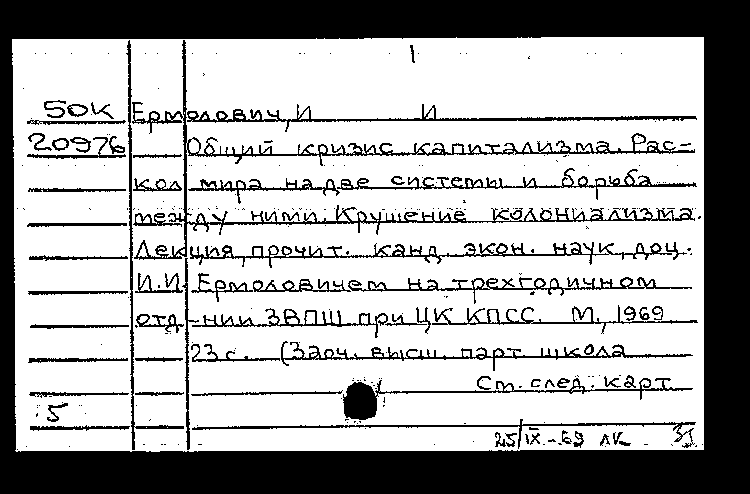 50К Ермолович, И И
20976 Общий кризис капитализма. Рас-
кол мира на две системы и борьба
между ними. Крушение колониализма.
Лекция, прочит. канд. экон. наук, доц.
И.И. Ермоловичем на трехгодичном
отд-нии ЗВПШ при ЦК КПСС. М., 1969
23 с. (Заоч. высш. парт школа
См. след. карт
5
25/IX-69 ЛК